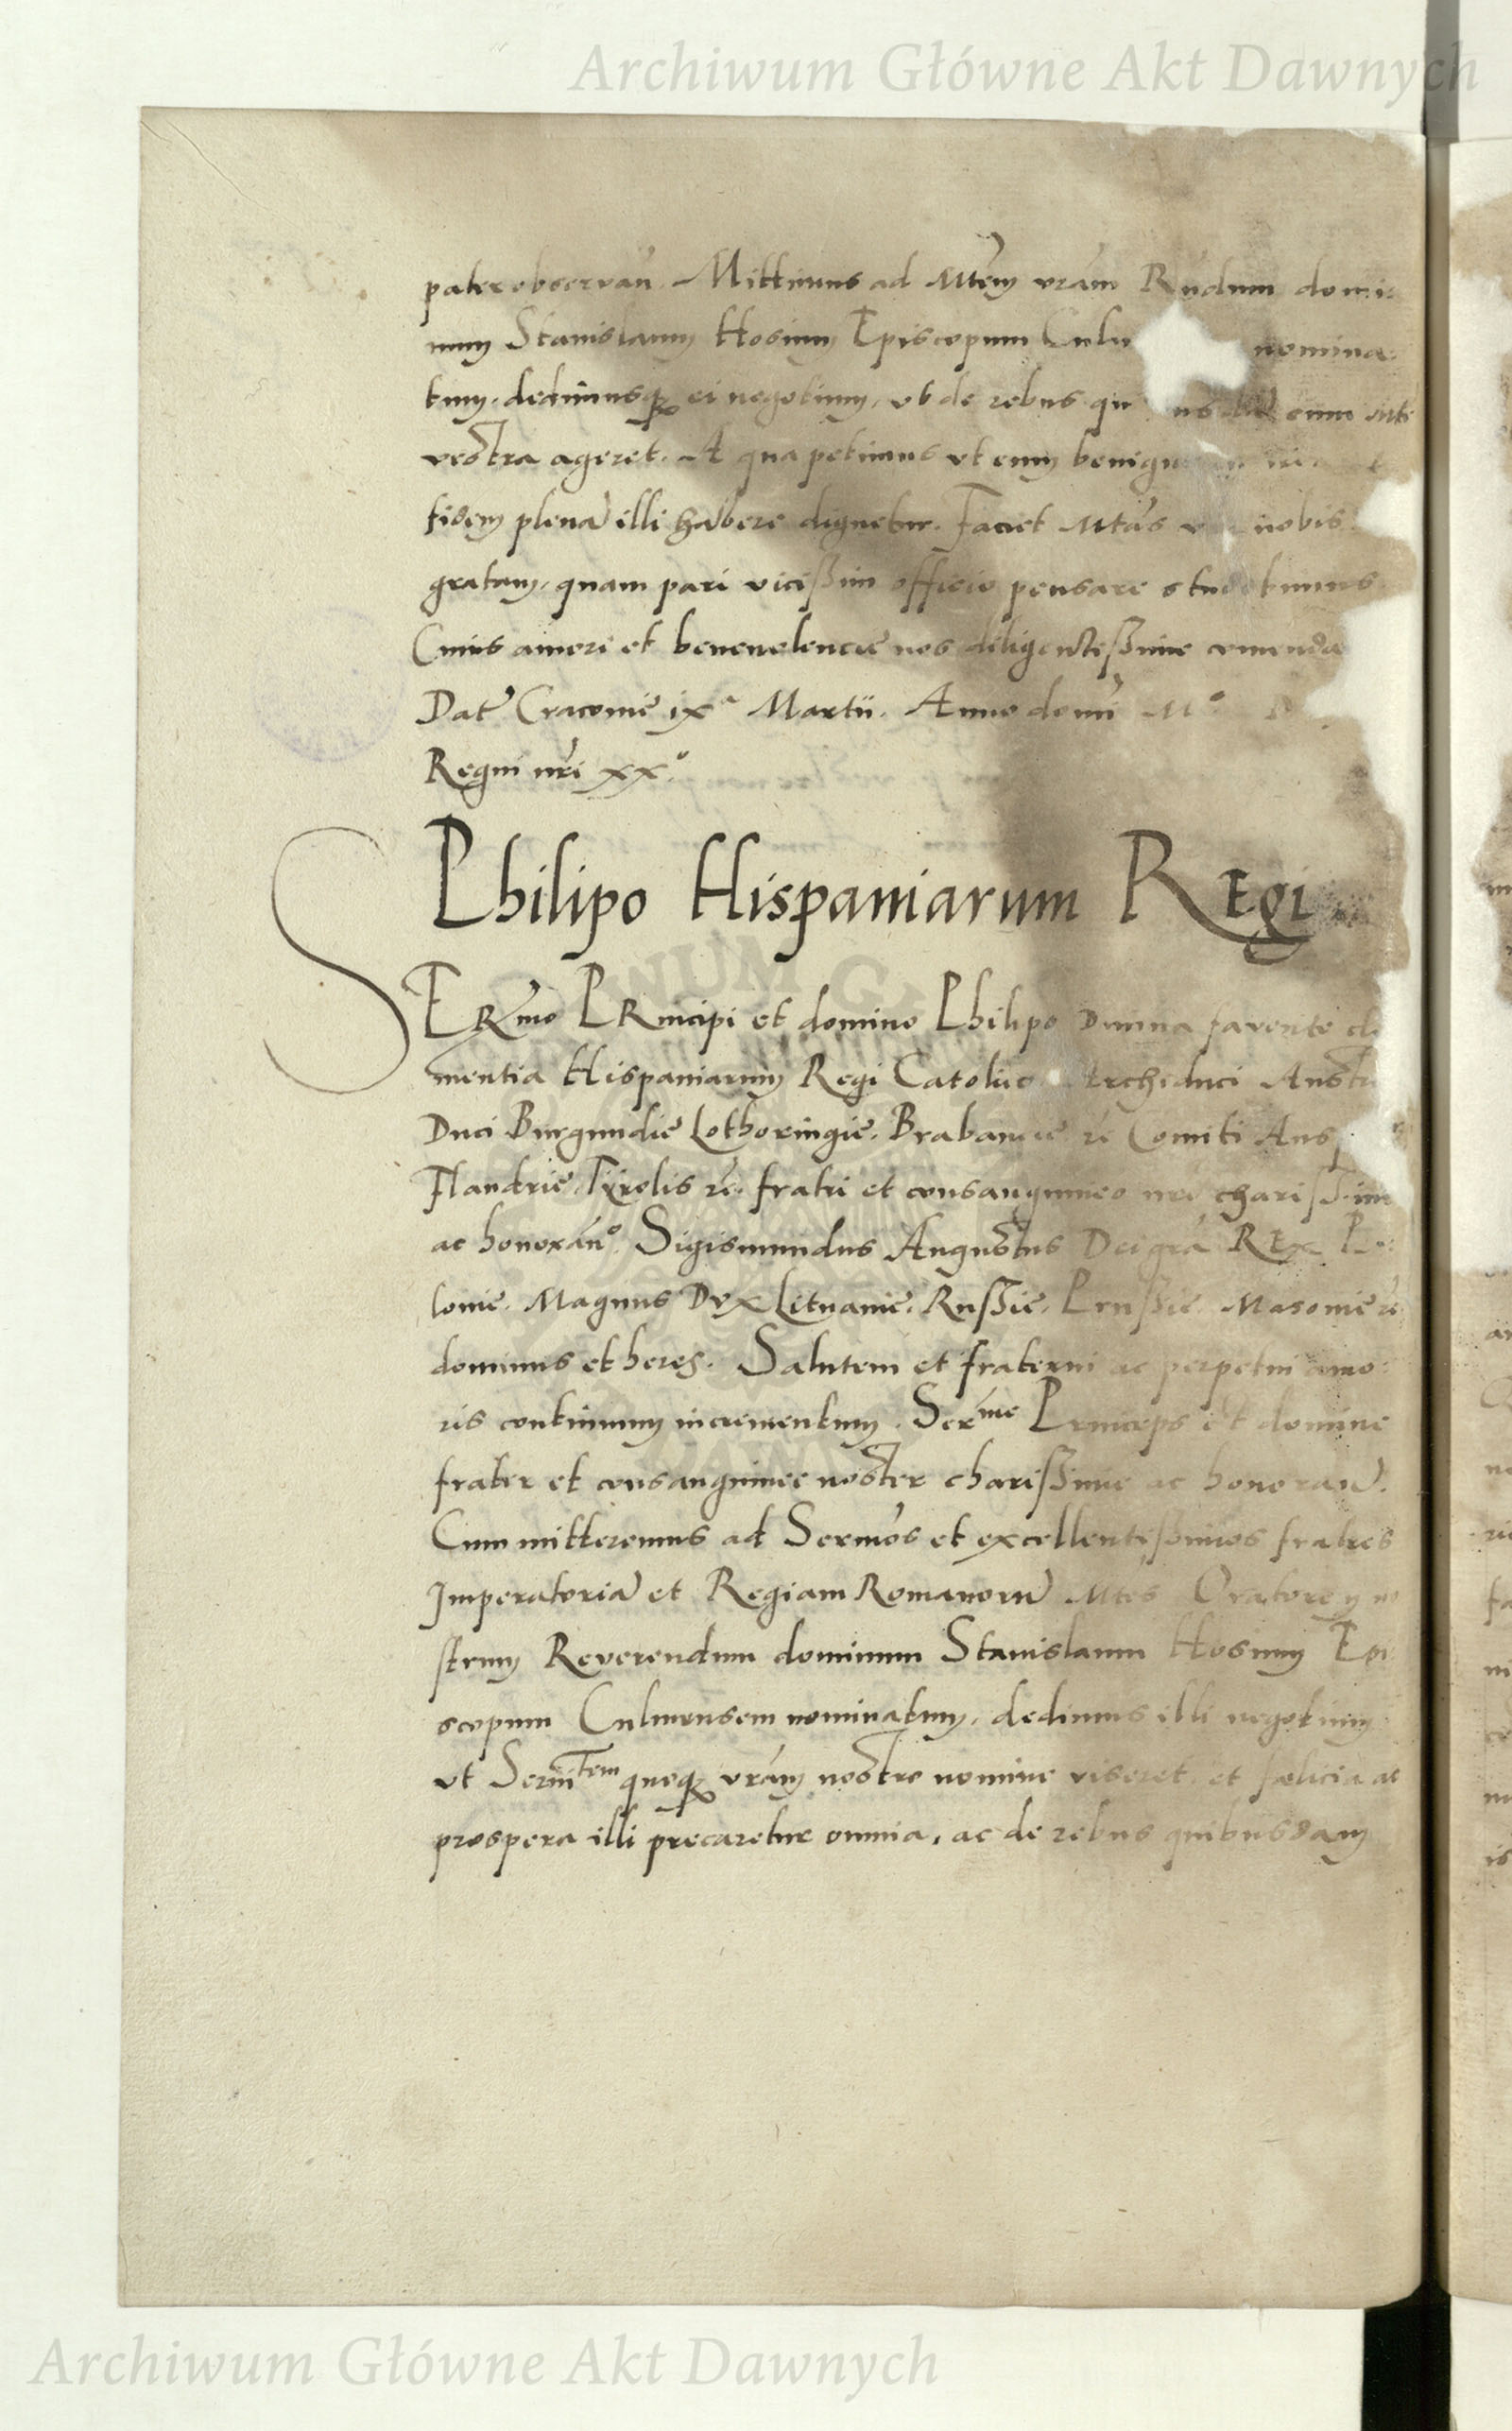 Archiwum Główne Akt Dawnych
pater observan̄. Mittimus ad Mtēm vrām Rn̄dum domi
num Stanislaum Hosium Episcopum Culm nomina
tum, dedimusq; ei negotium, ut de rebus cum Mte
vestra ageret. A qua petimus ut eum
fidem plenā illi habere dignetur. Faciet Mtās nobis
gratum, quam pari vicissim officio pensare studebimus
Cuius amori et benevolencie nos diligentissime comenda
Dat̄ Cracovie ixᵃ Martii. Anno domi M°
Regni nr̄i xx°
Philipo Hispaniarum Regi
SERmo̅ PRincipi et domino Philipo Divina favente cle
mentia Hispaniarum Regi Catolico Archiduci Austri
Duci Burgundie Lothoringie, Brabancie rē Comiti Ausp
Flandrie, Tyrolis rē. fratri et consanguineo nrō chariss.imo
ac honorān°. Sigismundus Augustus Dei grā REx Po:
lonie. Magnus Dux Lituanie, Russie, Prussie, Masovie rē
dominus et heres. Salutem et fraterni ac perpetui amo:
ris continuum incrementum. Serᵐᵉ Princeps et domine
frater et consanguinee noster charissime ac honoran̄.
Cum mitteremus ad Sermōs et excellentissimos fratres
Imperatoriā et Regiam Romanorū Mtēs Oratorem no
strum Reverendum dominum Stanislaum Hosium Epi
scopum Culmensem nominatum, dedimus illi negotium
ut Sermᵗᵉᵐ quoq; vrām nostro nomine viseret et fœlicia ac
prospera illi precaretur omnia, ac de rebus quibusdam
Archiwum Główne Akt Dawnych